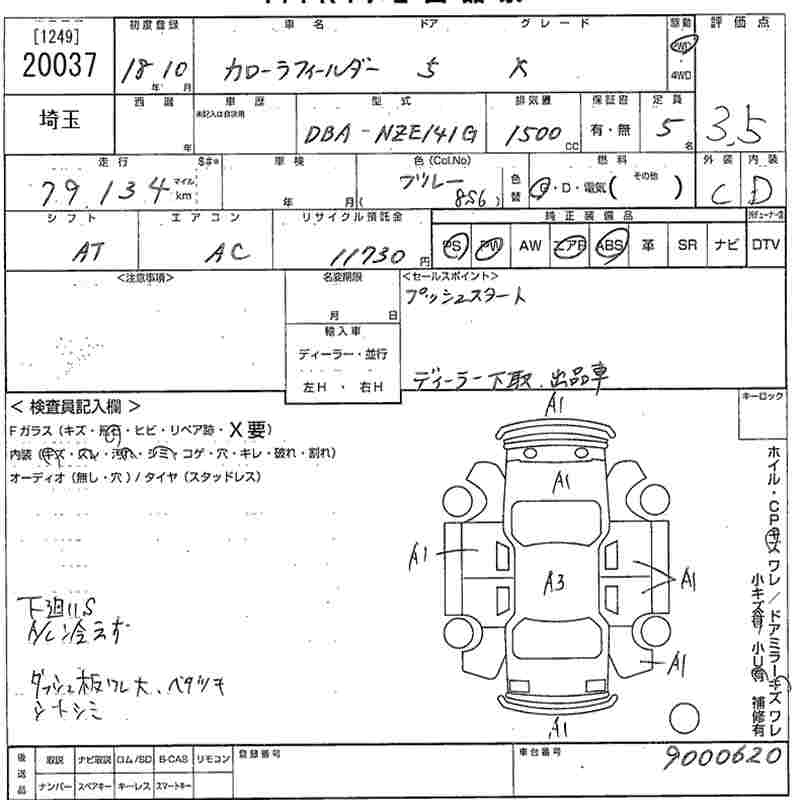 [1249]
20037
初度登録
車名
ドア
グレード
駆動
評価点
18 10
年 月
カローラフィールダー
5
X
2WD
4WD
埼玉
西暦
年
車歴
未記入は自家用
型式
排気量
保証書
定員
DBA-NZE141G
1500
CC
有・無
5
名
3.5
走行
79,134
マイル
km
車検
年 月
色(Col.No)
グレー
(856)
色替
燃料
G・D・電気(その他)
外装
内装
C
D
シフト
エアコン
リサイクル預託金
純正装備品
AT
AC
11730
円
PS
PW
AW
エアB
ABS
革
SR
ナビ
DTV
<注意事項>
名変期限
月 日
<セールスポイント>
プッシュスタート
輸入車
ディーラー・並行
左H・右H
ディーラー下取、出品車
キーロック
<検査員記入欄>
Fガラス(キズ・飛石・ヒビ・リペア跡・X要)
内装(キズ・スレ・汚れ・シミ・コゲ・穴・キレ・破れ・割れ)
オーディオ(無し・穴)/タイヤ(スタッドレス)
A1
A1
A1
A3
A1
A1
A1
下廻りS
A/C冷えず
ダッシュ板ワレ大、ベタツキ
シートシミ
ホイル・CPキズ ワレ/ドアミラーキズ ワレ
小キズ有 小U有 補修有
後送品
取説
ナビ取説
ロム/SD
B-CAS
リモコン
ナンバー
スペアキー
キーレス
スマートキー
登録番号
車台番号
9000620